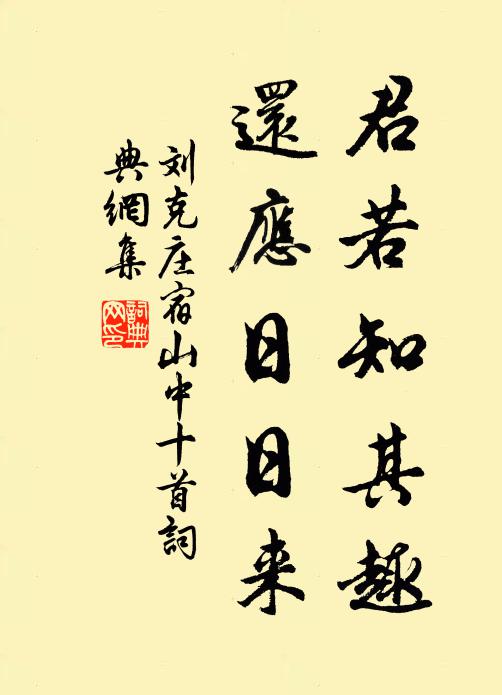 君若知其趣
還應日日来
刘克庄宿山中十首詞
典網集
詞典
网印